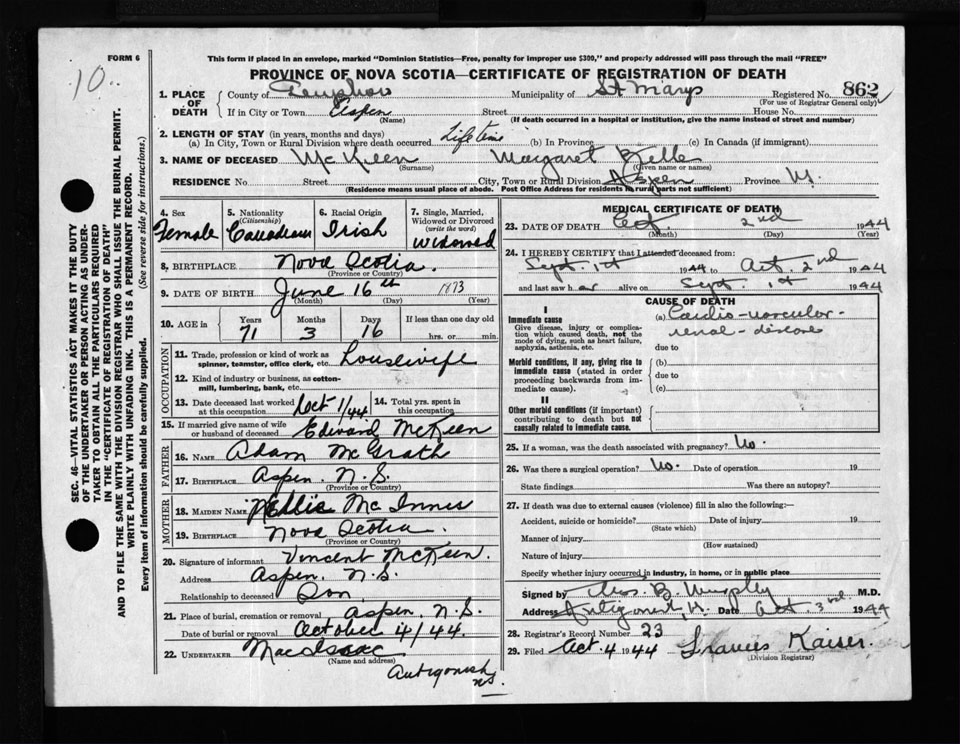 FORM 6
10..
This form if placed in an envelope, marked "Dominion Statistics—Free, penalty for improper use $300," and properly addressed will pass through the mail "FREE"
PROVINCE OF NOVA SCOTIA—CERTIFICATE OF REGISTRATION OF DEATH
1. PLACE OF DEATH County of Municipality of St Marys Registered No. 862
(For use of Registrar General only)
If in City or Town Aspen Street House No.
(Name) (If death occurred in a hospital or institution, give the name instead of street and number)
2. LENGTH OF STAY (in years, months and days)
(a) In City, Town or Rural Division where death occurred Life time (b) In Province (c) In Canada (if immigrant)
3. NAME OF DECEASED McKeen Margaret Belle
(Surname) (Given name or names)
RESIDENCE No. Street City, Town or Rural Division Aspen Province
(Residence means usual place of abode. Post Office Address for residents in rural parts not sufficient)
4. Sex Female
5. Nationality (Citizenship) Canadian
6. Racial Origin Irish
7. Single, Married, Widowed or Divorced (write the word) Widowed
8. BIRTHPLACE Nova Scotia.
(Province or Country)
9. DATE OF BIRTH June 16th 1873
(Month) (Day) (Year)
10. AGE in Years Months Days If less than one day old
71 3 16 hrs. or min.
OCCUPATION
11. Trade, profession or kind of work as spinner, teamster, office clerk, etc. Housewife
12. Kind of industry or business, as cotton-mill, lumbering, bank, etc.
13. Date deceased last worked at this occupation Oct 1/44
14. Total yrs. spent in this occupation
15. If married give name of wife or husband of deceased Edward McKeen
FATHER
16. NAME Adam McGrath
17. BIRTHPLACE Aspen N.S.
(Province or Country)
MOTHER
18. MAIDEN NAME Nellie McInnis
19. BIRTHPLACE Nova Scotia.
(Province or Country)
20. Signature of informant Vincent McKeen.
Address Aspen. N.S.
Relationship to deceased Son.
21. Place of burial, cremation or removal Aspen, N.S.
Date of burial or removal October 4/44.
22. UNDERTAKER MacIsaac
(Name and address)
Antigonish N.S.
MEDICAL CERTIFICATE OF DEATH
23. DATE OF DEATH Oct. 2nd 1944
(Month) (Day) (Year)
24. I HEREBY CERTIFY that I attended deceased from:
Sept. 1st 1944 to Oct. 2nd 1944
and last saw her alive on Sept. 1st 1944
CAUSE OF DEATH
I
Immediate cause
Give disease, injury or complication which caused death, not the mode of dying, such as heart failure, asphyxia, asthenia, etc.
(a) Cardio-vascular-
renal-disease
due to
Morbid conditions, if any, giving rise to immediate cause (stated in order proceeding backwards from immediate cause).
(b)
due to
(c)
II
Other morbid conditions (if important) contributing to death but not causally related to immediate cause.
25. If a woman, was the death associated with pregnancy? No.
26. Was there a surgical operation? No. Date of operation 19
State findings Was there an autopsy?
27. If death was due to external causes (violence) fill in also the following:—
Accident, suicide or homicide? Date of injury 19
(State which)
Manner of injury
(How sustained)
Nature of injury
Specify whether injury occurred in industry, in home, or in public place
Signed by B. Murphy M.D.
Address Antigonish, Date Oct. 3rd 1944
28. Registrar's Record Number 23
29. Filed Oct. 4 1944 Frances Kaiser
(Division Registrar)
SEC. 46—VITAL STATISTICS ACT MAKES IT THE DUTY
OF THE UNDERTAKER OR PERSON ACTING AS UNDER-
TAKER TO OBTAIN ALL THE PARTICULARS REQUIRED
IN THE "CERTIFICATE OF REGISTRATION OF DEATH"
AND TO FILE THE SAME WITH THE DIVISION REGISTRAR WHO SHALL ISSUE THE BURIAL PERMIT.
WRITE PLAINLY WITH UNFADING INK. THIS IS A PERMANENT RECORD.
Every item of information should be carefully supplied. (See reverse side for instructions.)